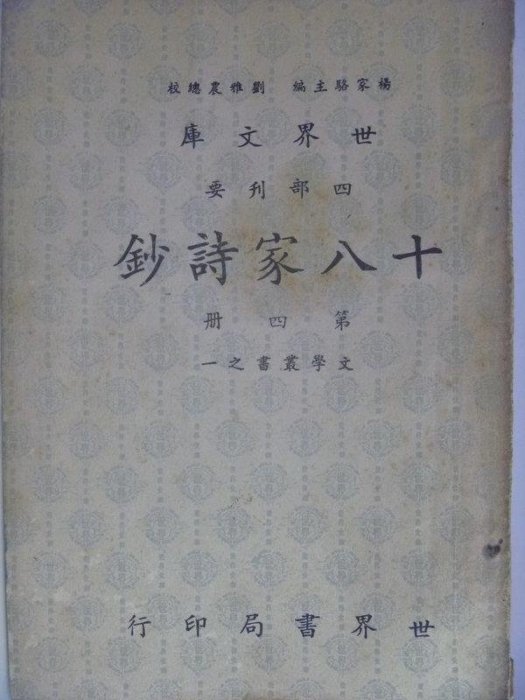 楊家駱主編 劉雅農總校
世界文庫
四部刊要
十八家詩鈔
第四册
文學叢書之一
世界書局印行